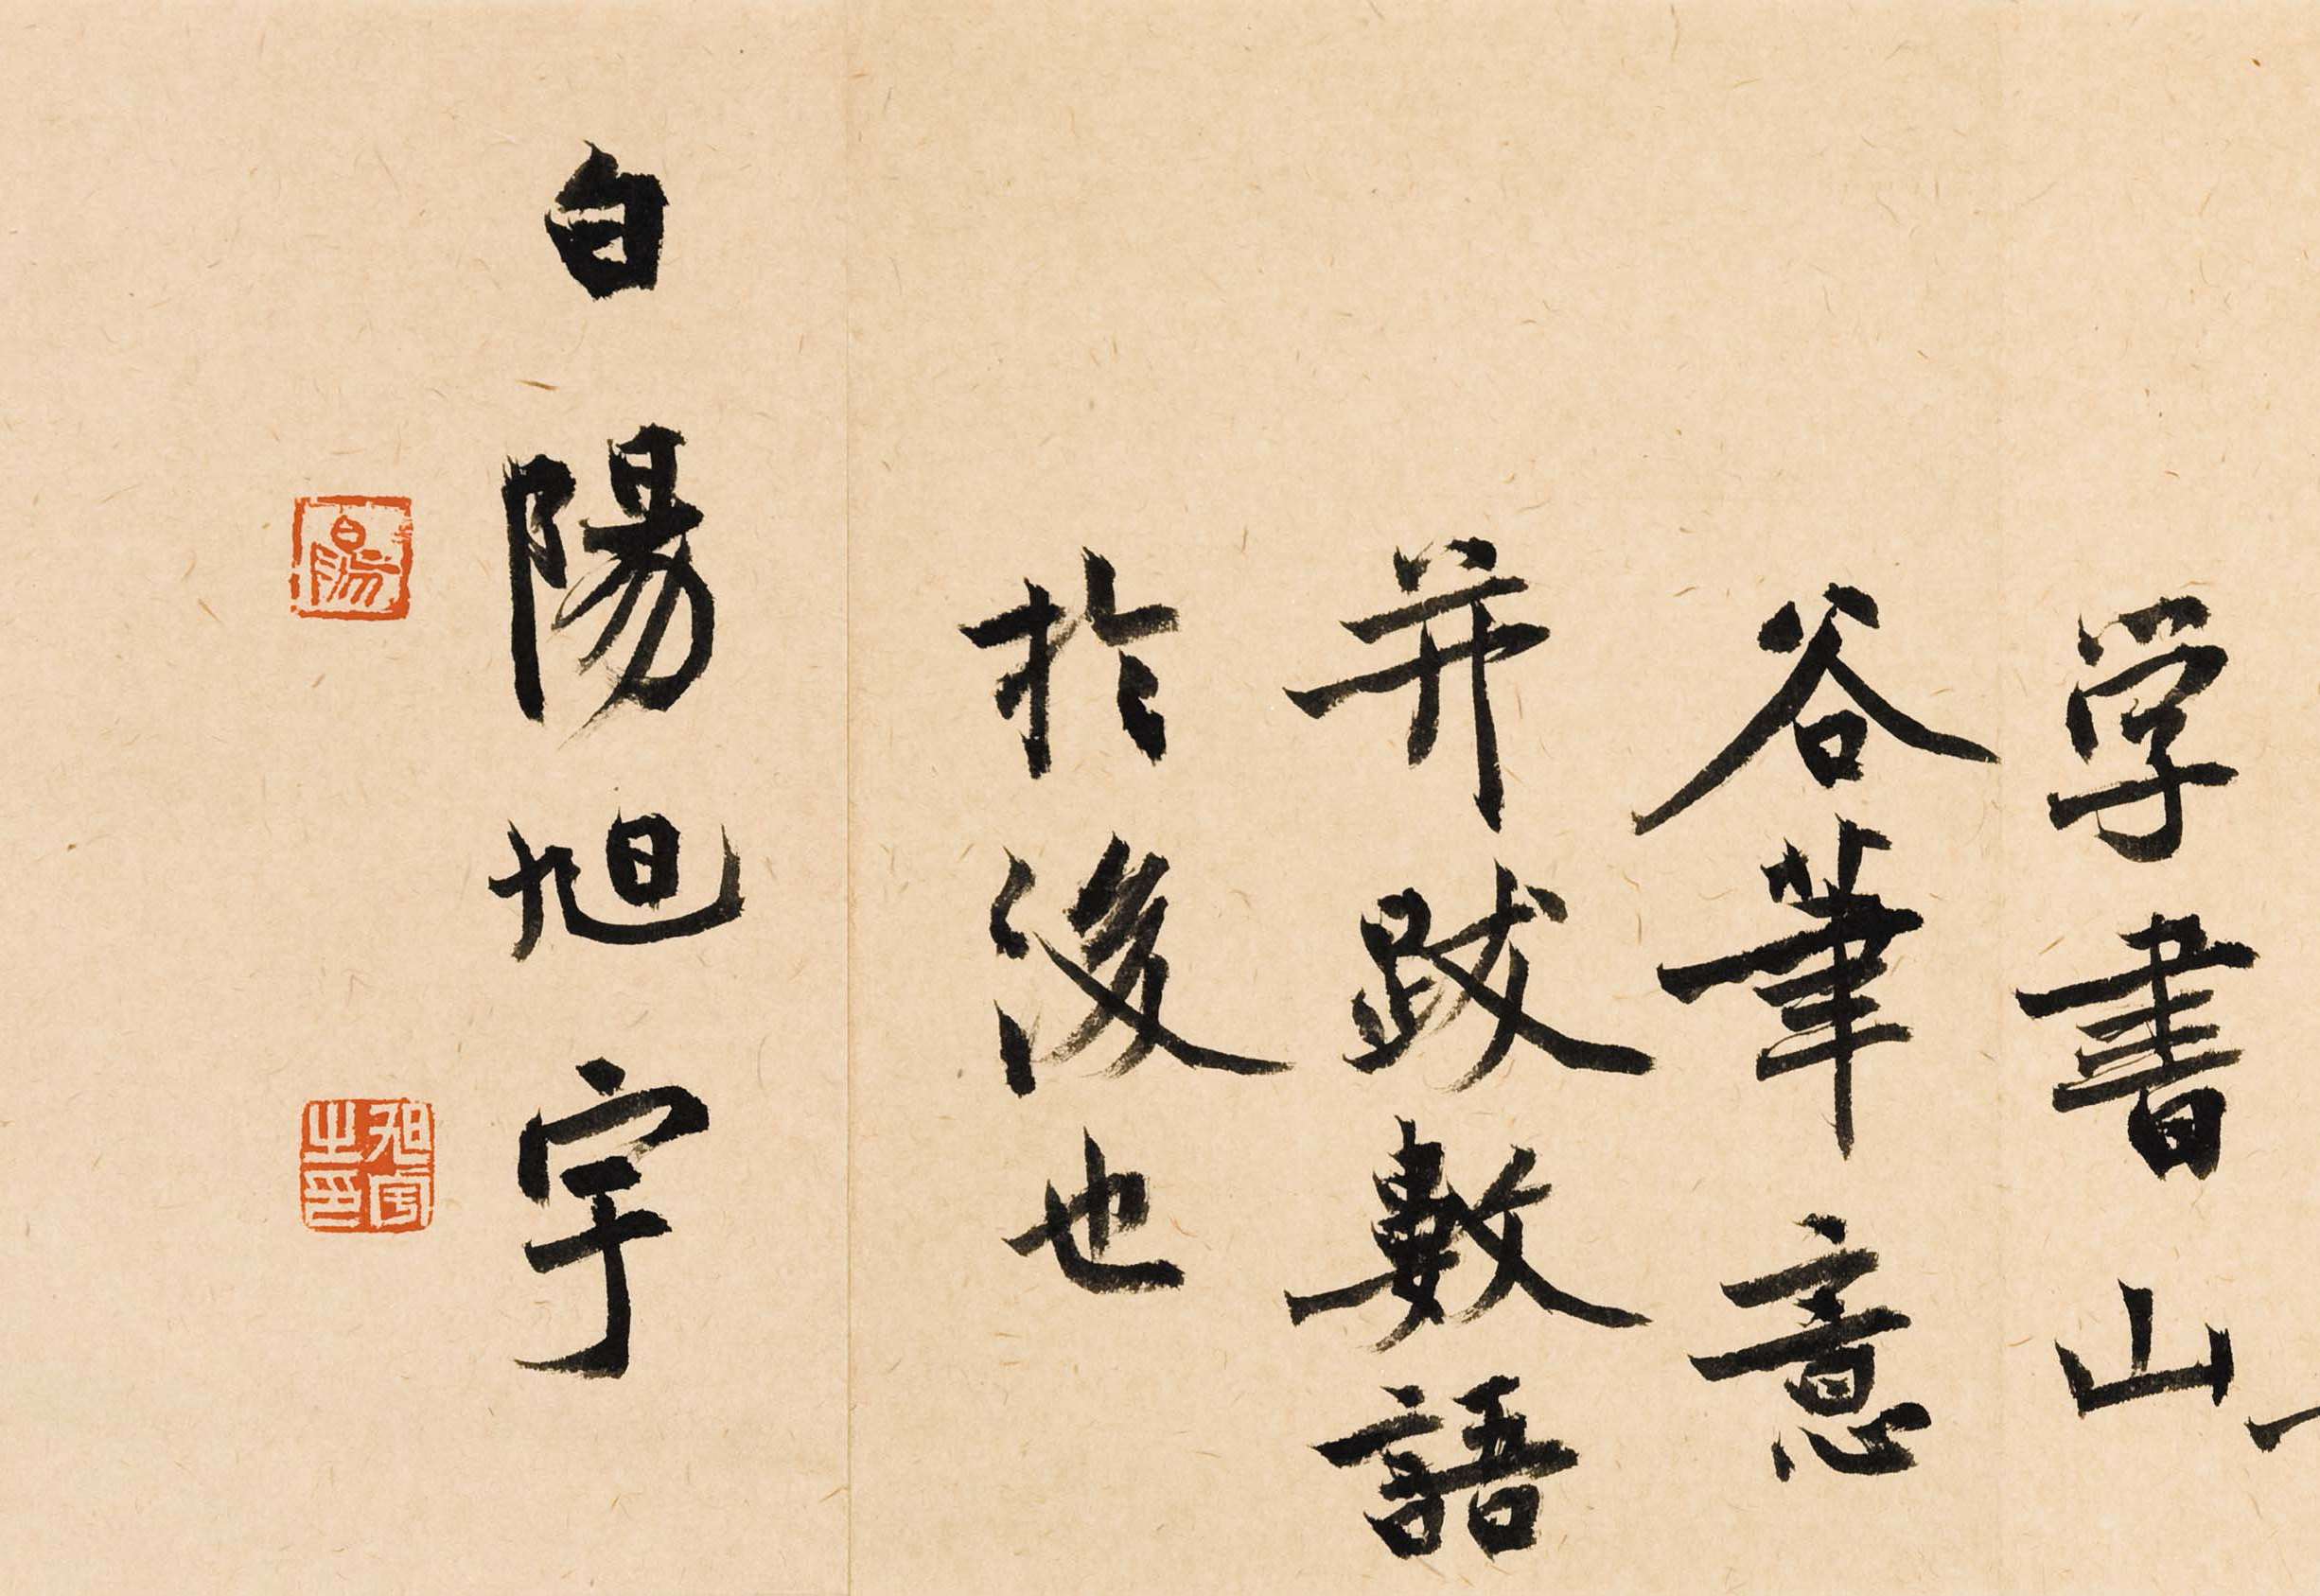 学書山
谷筆意
并跋數語
於後也
白陽旭宇
白陽
旭宇之印